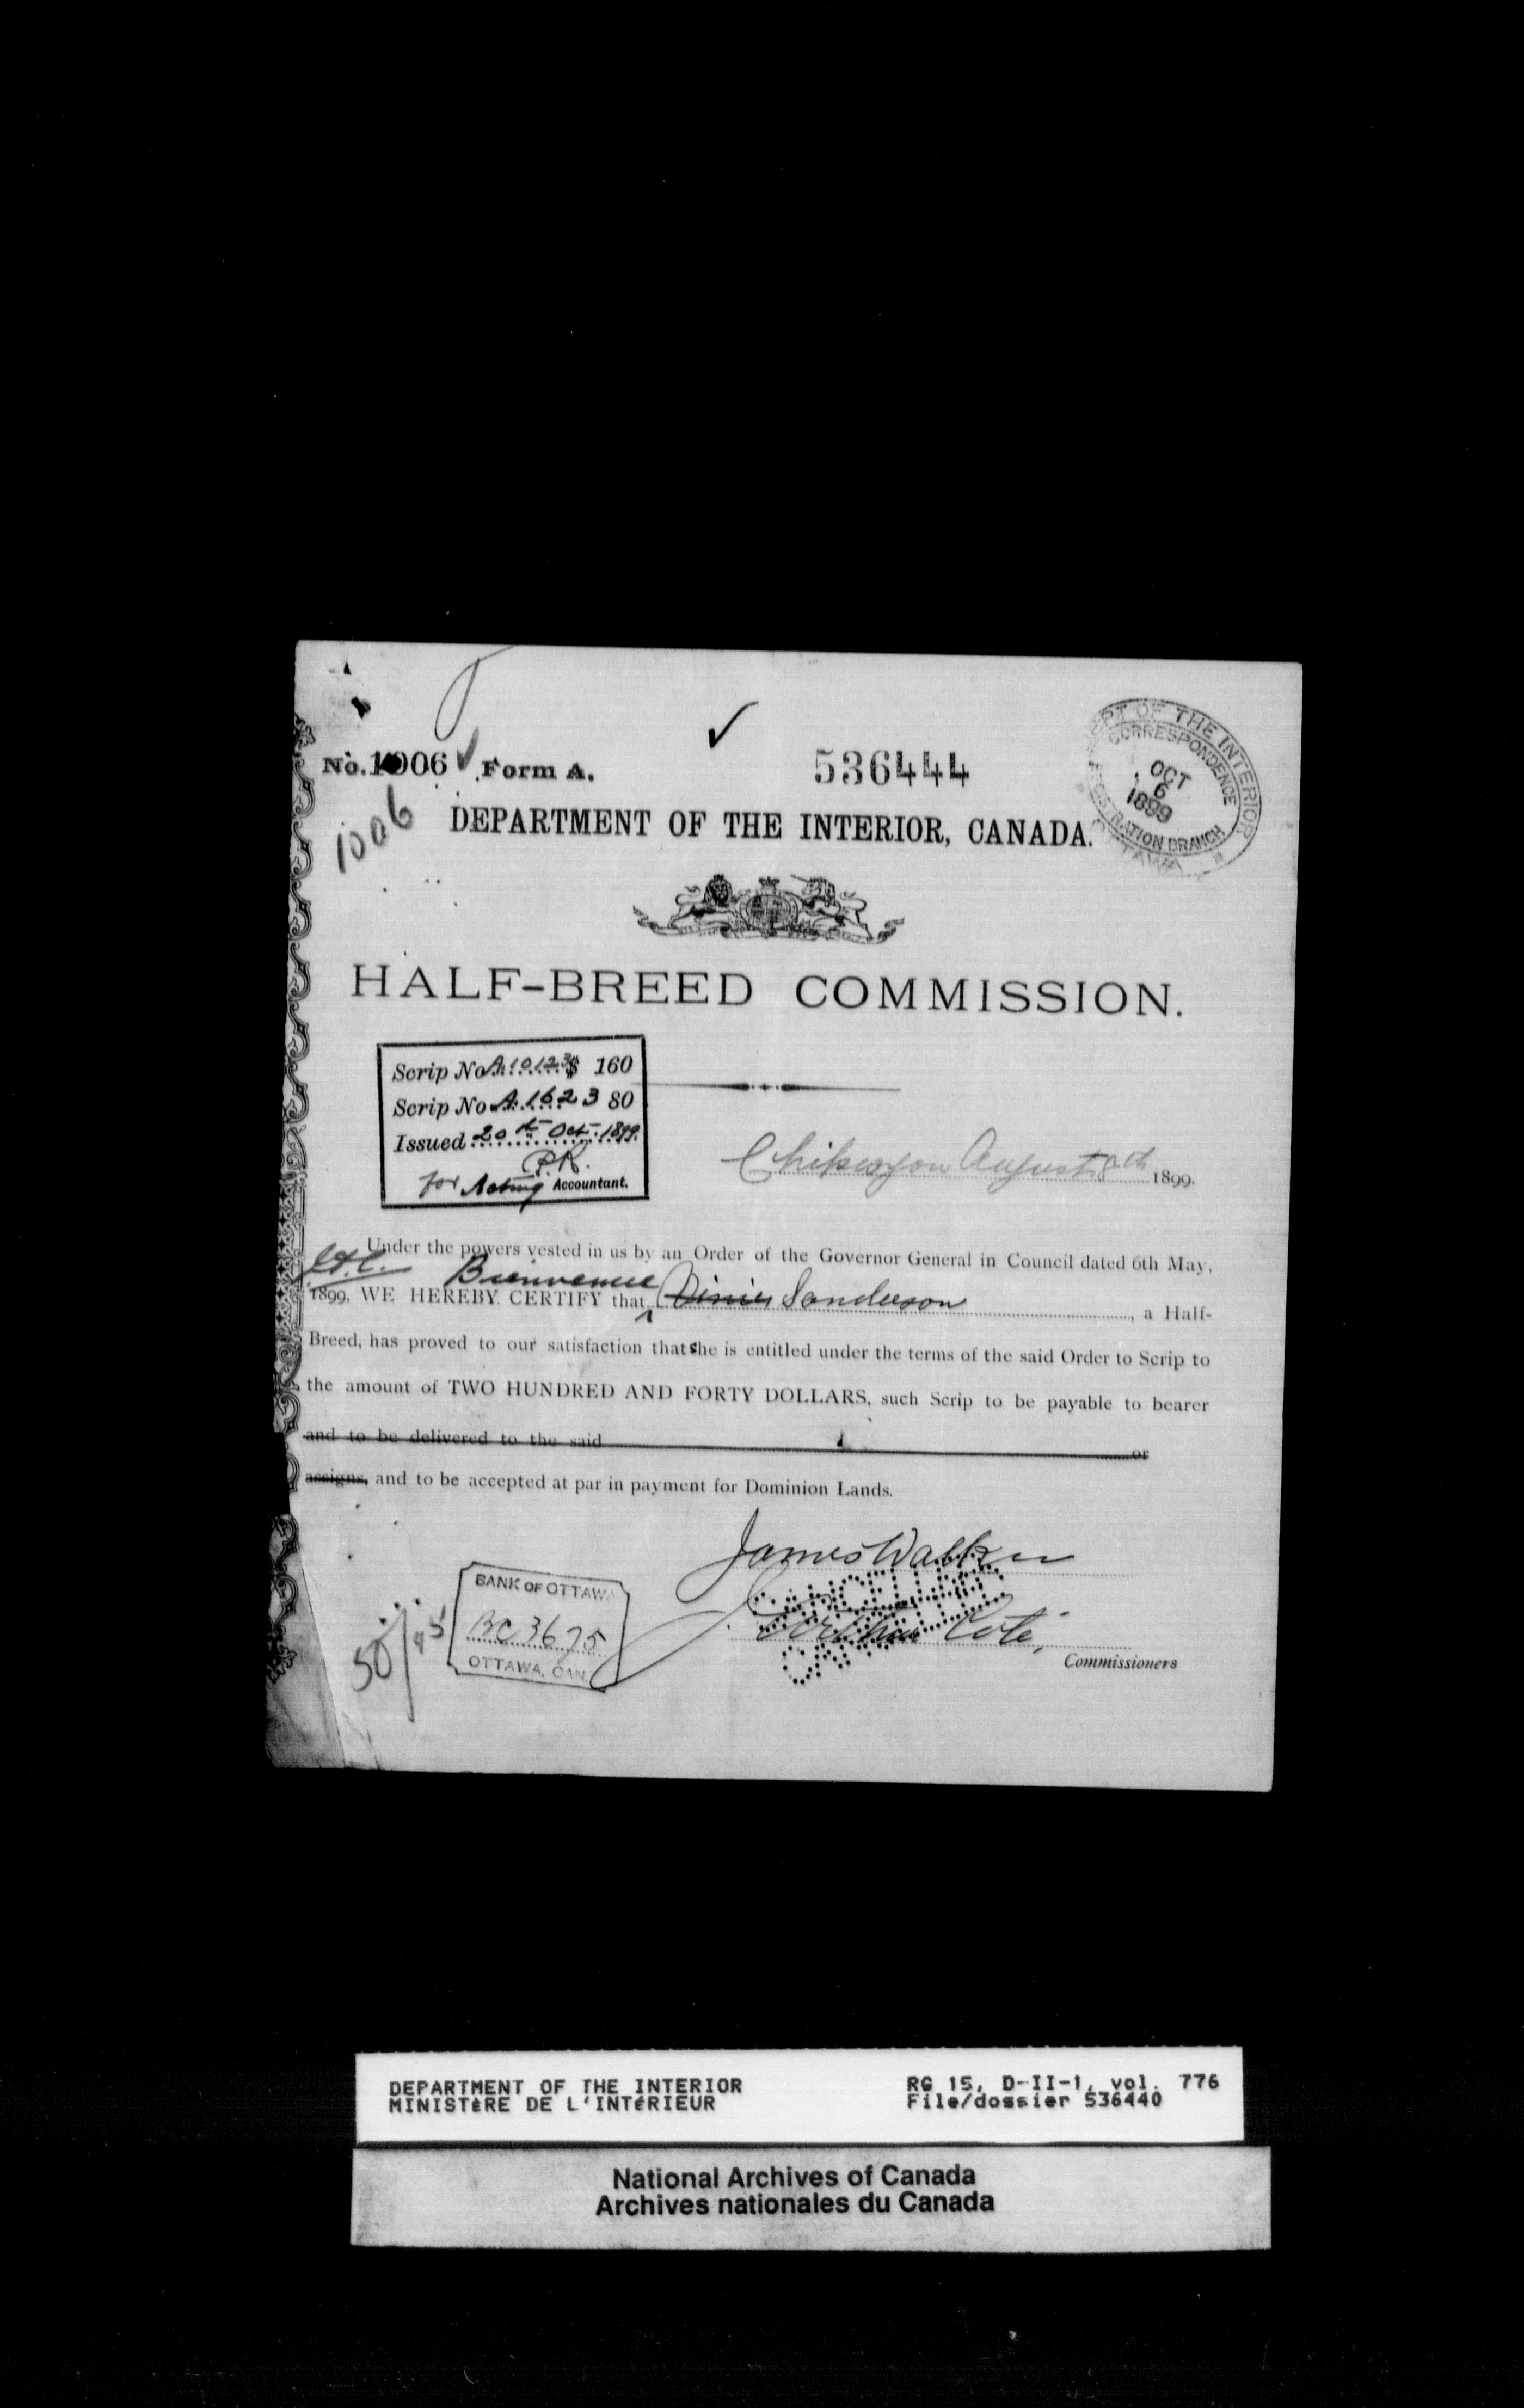 No. 1006 Form A.
536444
DEPT OF THE INTERIOR
CORRESPONDENCE
OCT
6
1899
REGISTRATION BRANCH
OTTAWA
1006
DEPARTMENT OF THE INTERIOR, CANADA.
HALF-BREED COMMISSION.
Scrip No A.10123 $ 160
Scrip No A.1623 80
Issued 20th Oct. 1899.
P.R.
for Acting Accountant.
Chipewyan August 8th 1899.
Under the powers vested in us by an Order of the Governor General in Council dated 6th May,
Bienvenue
1899, WE HEREBY CERTIFY that Sanderson, a Half-
Breed, has proved to our satisfaction that she is entitled under the terms of the said Order to Scrip to
the amount of TWO HUNDRED AND FORTY DOLLARS, such Scrip to be payable to bearer
and to be delivered to the said or
assigns, and to be accepted at par in payment for Dominion Lands.
James Walker
CANCELLED
J. Arthur Coté,
Commissioners
BANK OF OTTAWA
BC 3675
OTTAWA, CAN.
50/95
DEPARTMENT OF THE INTERIOR
MINISTÈRE DE L'INTÉRIEUR
RG 15, D-II-1, vol. 776
File/dossier 536440
National Archives of Canada
Archives nationales du Canada